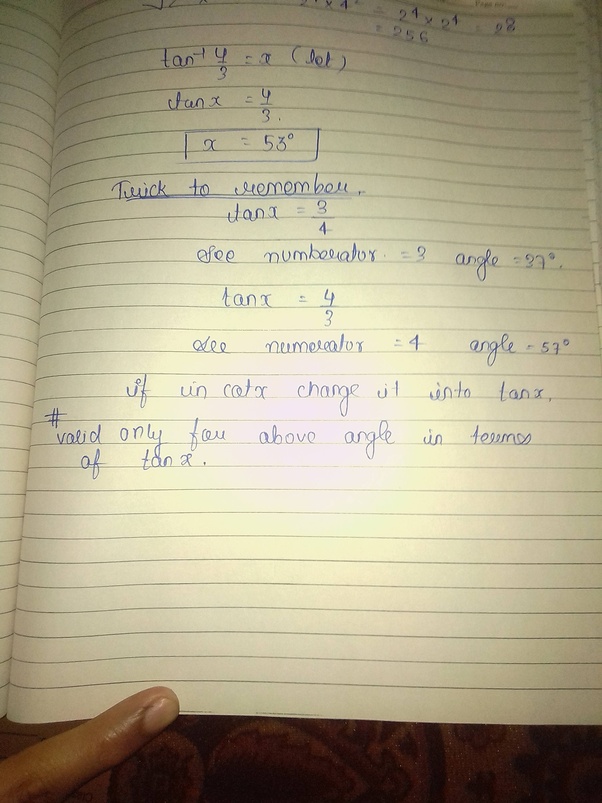 = 2⁴ × 2⁴ = 2⁸
= 256
tan⁻¹ 4/3 = x (let)
tan x = 4/3.
x = 53°
Trick to remember.
tan x = 3/4
See numberator. = 3 angle = 37°.
tan x = 4/3
see numerator = 4 angle = 57°
if in cotx change it into tanx.
# valid only for above angle in terms
of tan x.